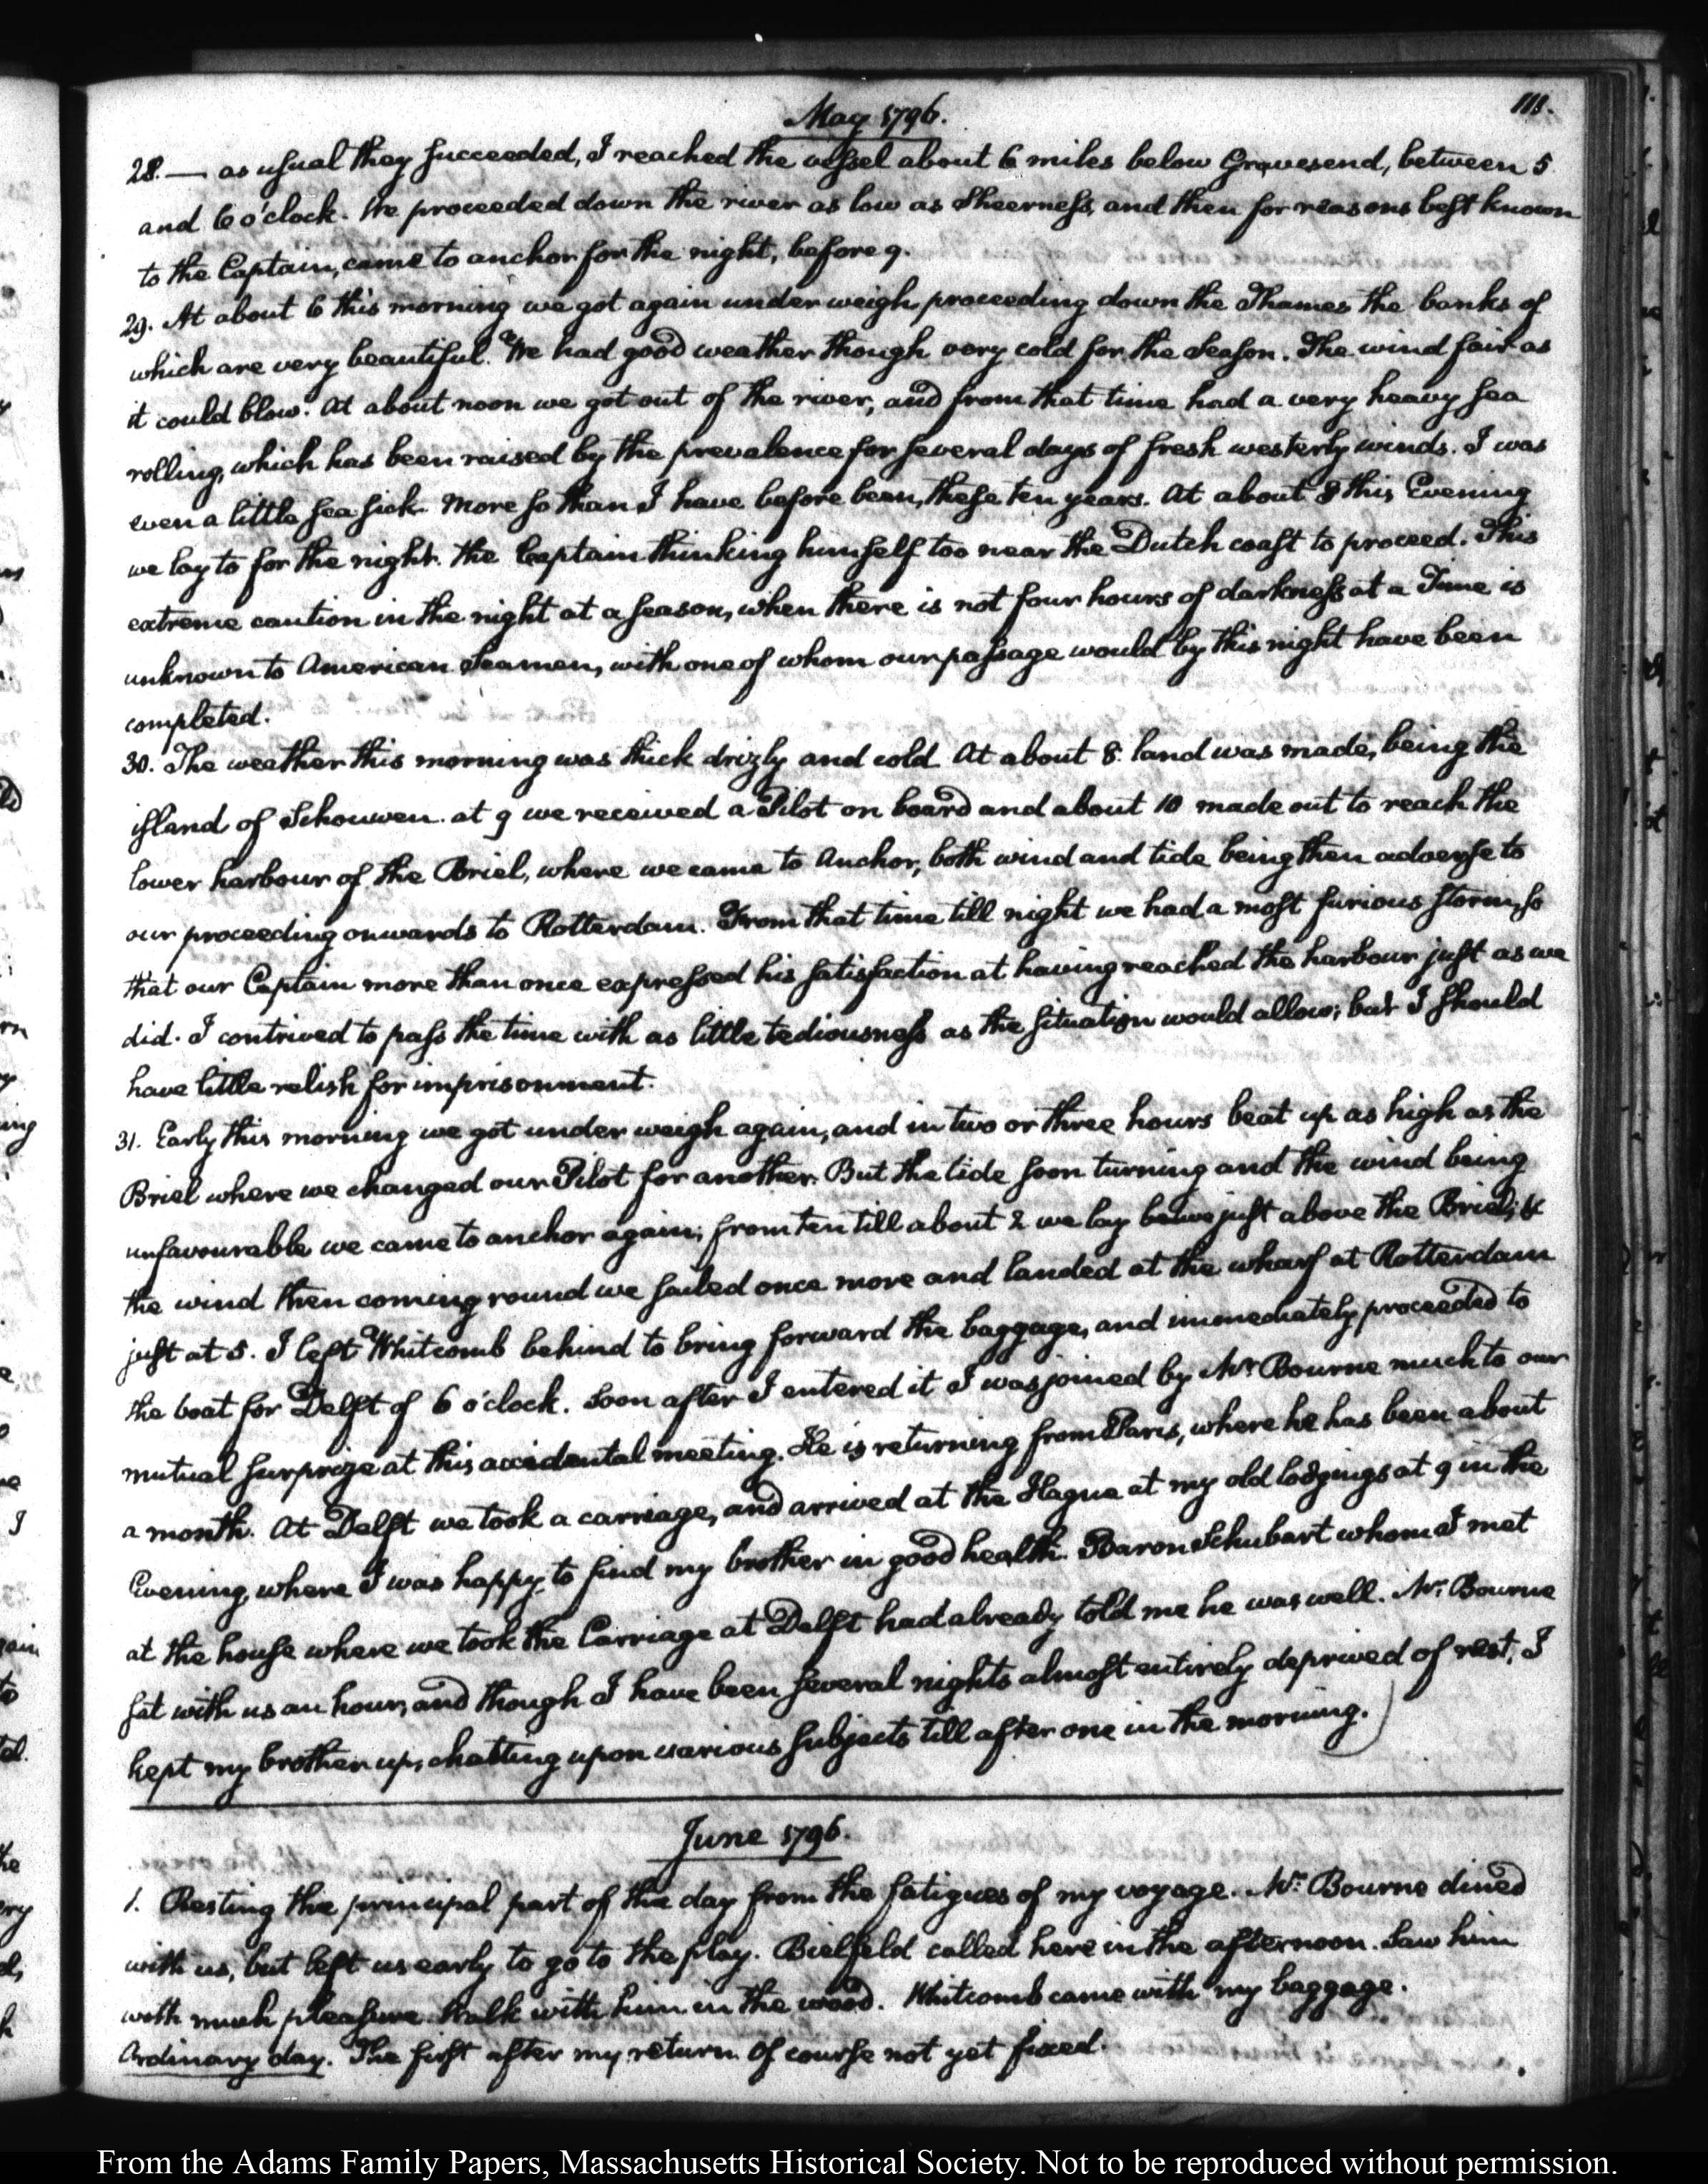 May 1796.
111.
28. — as usual they succeeded, I reached the vessel about 6 miles below Gravesend, between 5
and 6 o'clock. We proceeded down the river as low as Sheerness, and then for reasons best known
to the Captain, came to anchor for the night, before 9.
29. At about 6 this morning we got again under weigh, proceeding down the Thames the banks of
which are very beautiful. We had good weather though very cold for the Season. The wind fair as
it could blow. At about noon we got out of the river, and from that time had a very heavy sea
rolling, which has been raised by the prevalence for several days of fresh westerly winds. I was
even a little sea sick. More so than I have before been, these ten years. At about 8 this Evening
we lay to for the night. The Captain thinking himself too near the Dutch coast to proceed. This
extreme caution in the night at a season, when there is not four hours of darkness at a Time is
unknown to American Seamen, with one of whom our passage would by this night have been
completed.
30. The weather this morning was thick drizly and cold. At about 8. land was made, being the
island of Schouwen. at 9 we received a Pilot on board and about 10 made out to reach the
lower harbour of the Briel, where we came to Anchor, both wind and tide being then adverse to
our proceeding onwards to Rotterdam. From that time till night we had a most furious storm, so
that our Captain more than once expressed his satisfaction at having reached the harbour just as we
did. I contrived to pass the time with as little tediousness as the situation would allow; but I should
have little relish for imprisonment.
31. Early this morning we got under weigh again, and in two or three hours beat up as high as the
Briel where we changed our Pilot for another. But the tide soon turning and the wind being
unfavourable we came to anchor again; from ten till about 2 we lay just above the Briel; &
the wind then coming round we sailed once more and landed at the wharf at Rotterdam
just at 5. I left Whitcomb behind to bring forward the baggage, and immediately proceeded to
the boat for Delft of 6 o'clock. Soon after I entered it I was joined by Mr. Bourne much to our
mutual surprize at this accidental meeting. He is returning from Paris, where he has been about
a month. At Delft we took a carriage, and arrived at the Hague at my old lodgings at 9 in the
Evening, where I was happy to find my brother in good health. Baron Schubart whom I met
at the house where we took the Carriage at Delft had already told me he was well. Mr. Bourne
sat with us an hour, and though I have been several nights almost entirely deprived of rest, I
kept my brother up, chatting upon various subjects till after one in the morning.
June 1796.
1. Resting the principal part of the day from the fatigues of my voyage. Mr. Bourne dined
with us, but left us early to go to the play. Bielfeld called here in the afternoon. Saw him
with much pleasure. Walk with him in the wood. Whitcomb came with my baggage.
Ordinary day. The first after my return. Of course not yet fixed.
From the Adams Family Papers, Massachusetts Historical Society. Not to be reproduced without permission.